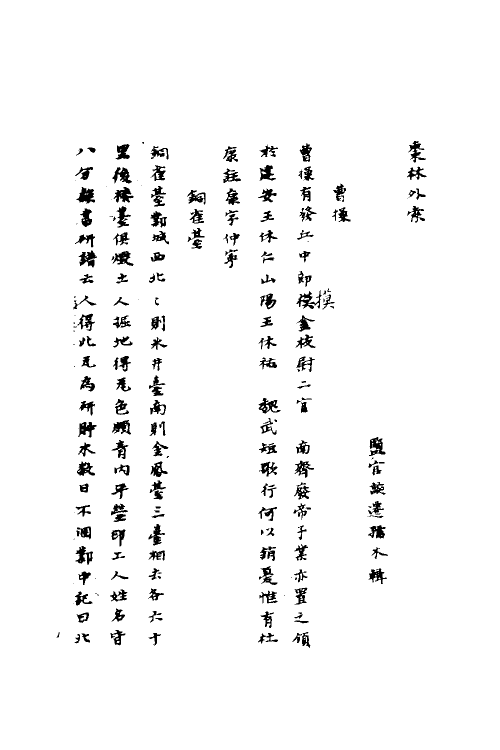 棗林外索
鹽官談遷孺木輯
曹操
曹操有發丘中郎模金校尉二官　南齊廢帝子業亦置之領
摸
於建安王休仁山陽王休祐　魏武短歌行何以銷憂惟有杜
康註康字仲寧
銅雀臺
銅雀臺鄴城西北〻則氷井臺南則金鳳臺三臺相去各六十
里後樓臺俱燬土人掘地得瓦色頗青內平瑩印工人姓名字
八分隸書研譜云人得此瓦為研貯水數日不涸鄴中記曰北